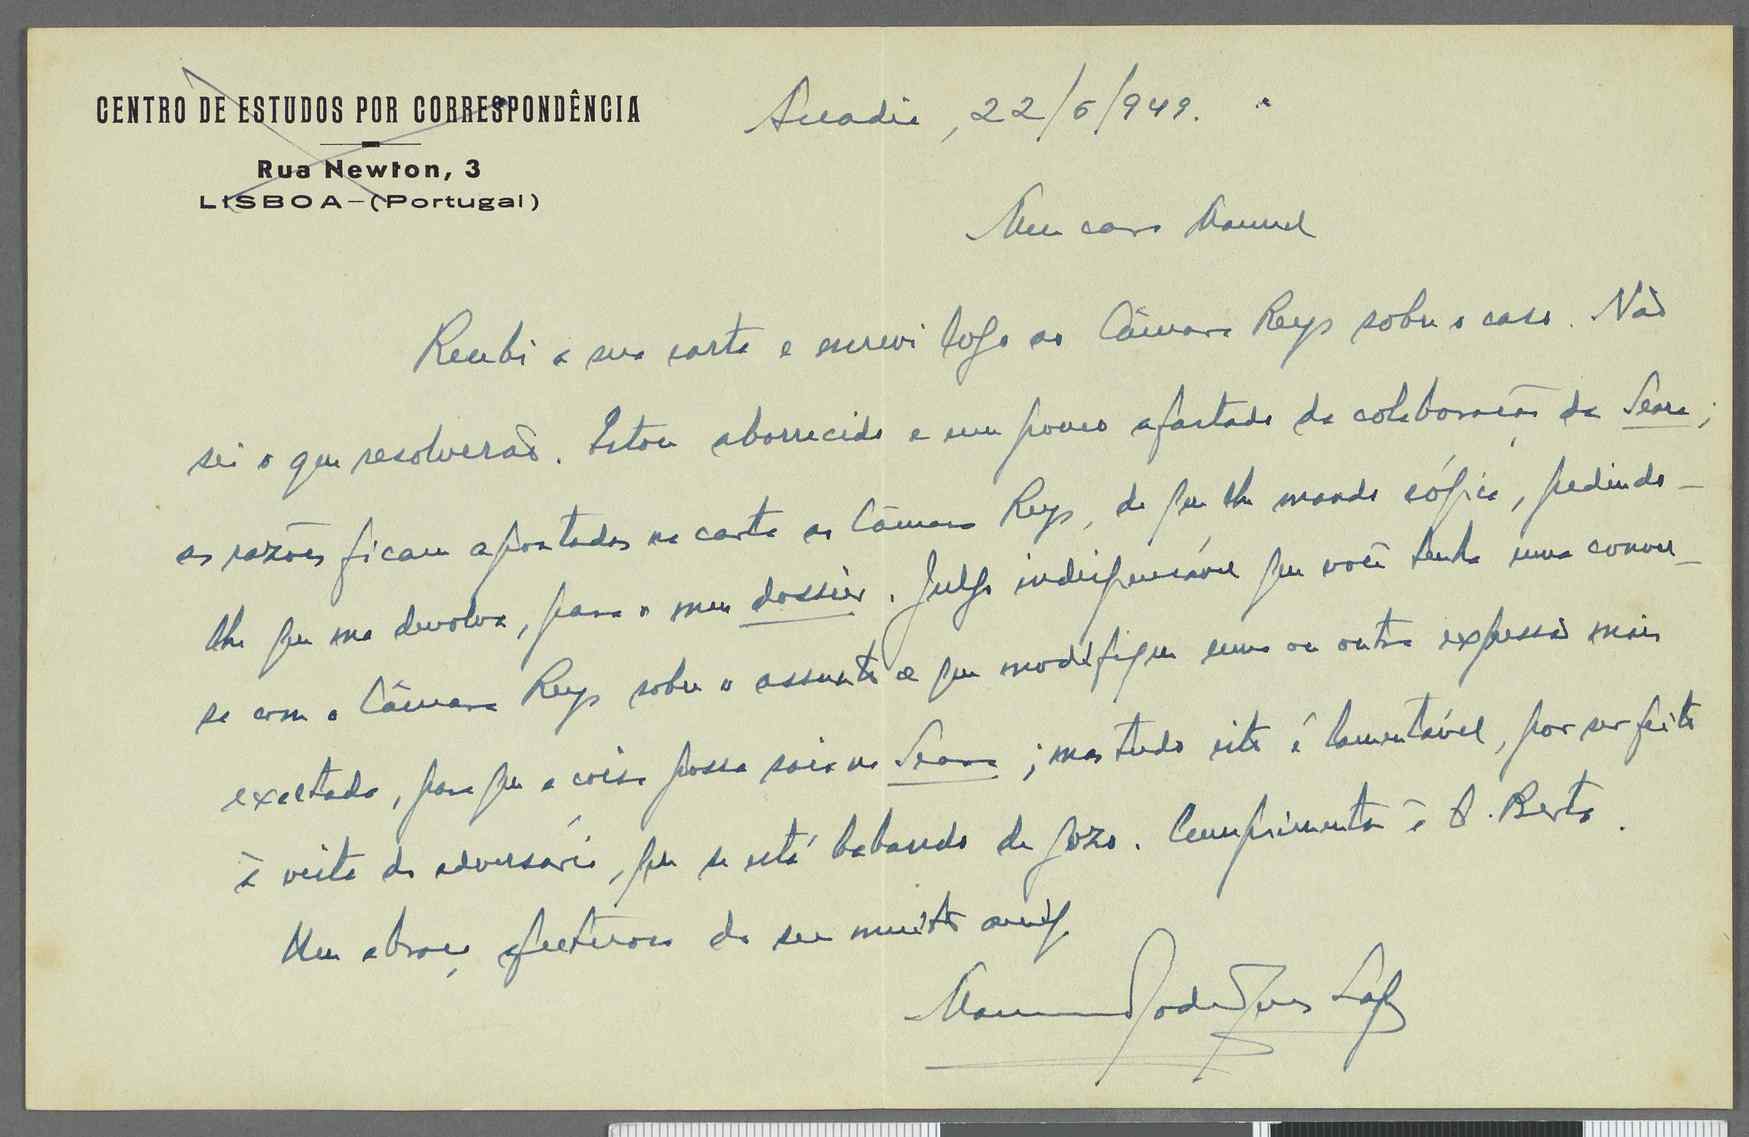 CENTRO DE ESTUDOS POR CORRESPONDÊNCIA
Rua Newton, 3
LISBOA-(Portugal)
Anadia, 22/6/949.
Meu caro Manuel
Recebi a sua carta e escrevi logo ao Câmara Reys sobre o caso. Não
sei o que resolverão. Estou aborrecido e um pouco afastado da colaboração da Seara;
as razões ficam apontadas na carta ao Câmara Reys, de que lhe mando cópia, pedindo-
lhe que ma devolva, para o meu dossier. Julgo indispensável que você tenha uma conver-
sa com o Câmara Reys sobre o assunto e que modifique uma ou outra expressão mais
exaltada, para que a coisa possa sair na Seara; mas tudo isto é lamentável, por ser feito
à vista do adversário, que se está babando de gozo. Cumprimentos à D. Berta.
Um abraço afectuoso do seu muito amigo
Manuel Rodrigues Lapa